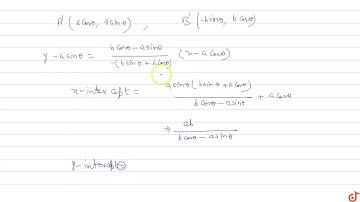 A'(a cosθ, a sinθ) , B'(-b sinθ, b cosθ)
y - a sinθ = b cosθ - a sinθ / -(b sinθ + a cosθ) (x - a cosθ)
x-intercept = a sinθ (b sinθ + a cosθ) / b cosθ - a sinθ + a cosθ
⇒ ab / b cosθ - a sinθ
y-intercept =